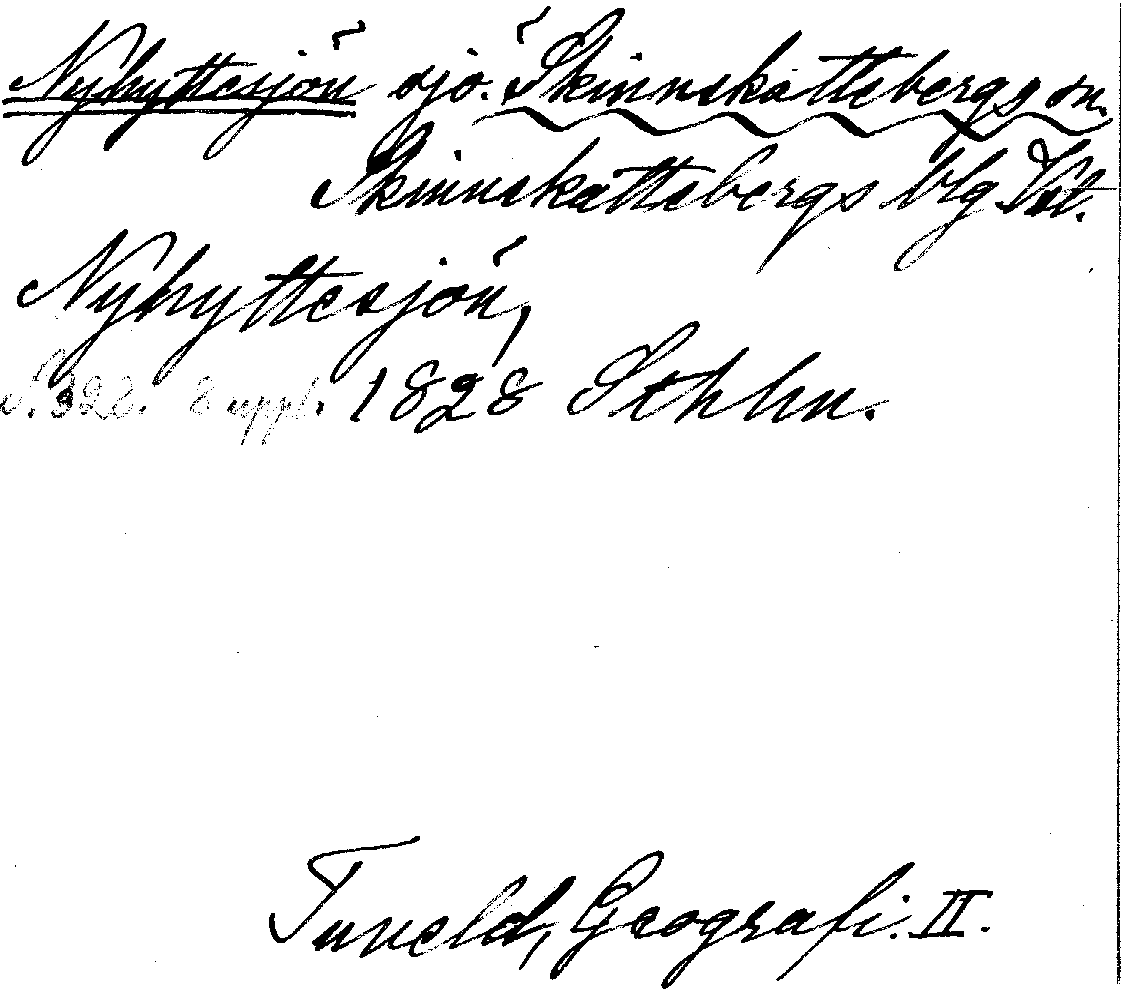 Nyhyttesjön sjö. Skinnskattebergs sn.
Skinnskattebergs blg Vst.
Nyhyttesjön,
s. 328. 8 uppl. 1828 Sthlm.
Tuneld, Geografi. II.